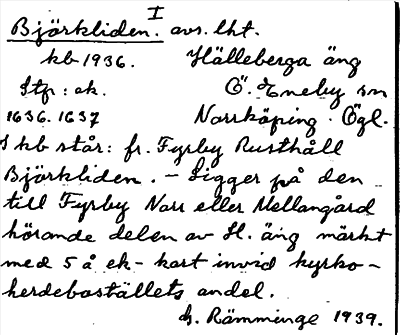 I
Björkliden. avs. lht.
kb 1936. Hälleberga äng
Stp: ek. Ö. Eneby sn
1636. 1637 Norrköping. Ögl.
I kb står: fr. Fyrby Rusthåll
Björkliden. - Ligger på den
till Fyrby Norr eller Mellangård
hörande delen av H. äng märkt
med 5 å ek-kart invid kyrko-
herdeboställets andel.
H. Rämminge 1939.